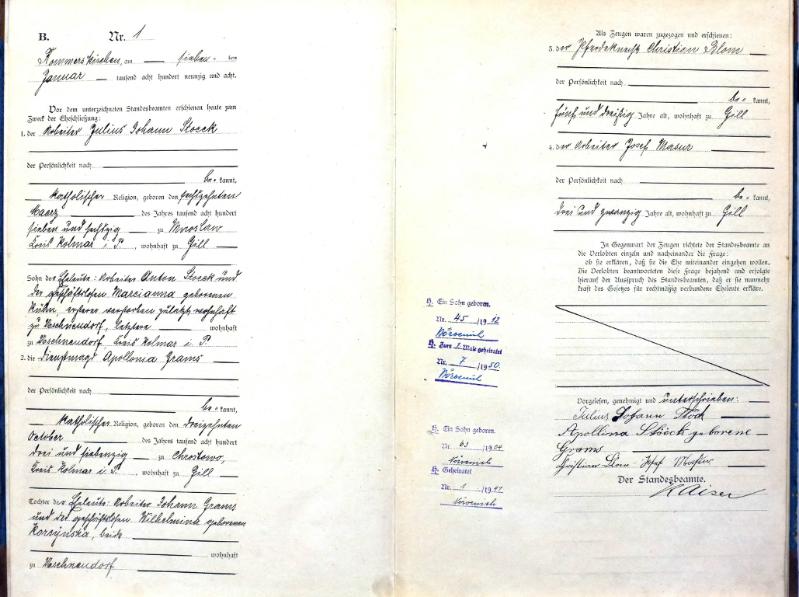 B. Nr. 1
Kommerskirchen, am sieben ten
Januar tausend acht hundert neunzig und acht.
Vor dem unterzeichneten Standesbeamten erschienen heute zum
Zweck der Eheschließung:
1. der Arbeiter Julius Johann Stoeck
der Persönlichkeit nach
be= kannt,
katholischer Religion, geboren den sechszehnten
Maerz des Jahres tausend acht hundert
sieben und sechzig zu
Kreis Kolmar i. P., wohnhaft zu Gill
Sohn der Eheleute: Arbeiter Anton Stoeck und
der geschäftslosen Marcianna geborenen
Kühn, ersterer verstorben zuletzt wohnhaft
zu Deschnendorf, letztere wohnhaft
zu Deschnendorf Kreis Kolmar i. P.
2. die Dienstmagd Apollonia Grams
der Persönlichkeit nach
be= kannt,
katholischer Religion, geboren den dreizehnten
October des Jahres tausend acht hundert
drei und siebenzig zu Chrostowo,
Kreis Kolmar i. P., wohnhaft zu Gill
Tochter der Eheleute: Arbeiter Johann Grams
und der geschäftslosen Wilhelmina geborenen
beide
wohnhaft
zu Deschnendorf
Als Zeugen waren zugezogen und erschienen:
3. der Pferdeknecht Christian Blom
der Persönlichkeit nach
be= kannt,
fünf und dreißig Jahre alt, wohnhaft zu Gill
4. der Arbeiter Josef Masur
der Persönlichkeit nach
be= kannt,
drei und zwanzig Jahre alt, wohnhaft zu Gill
In Gegenwart der Zeugen richtete der Standesbeamte an
die Verlobten einzeln und nacheinander die Frage:
ob sie erklären, daß sie die Ehe miteinander eingehen wollen.
Die Verlobten beantworteten diese Frage bejahend und erfolgte
hierauf der Ausspruch des Standesbeamten, daß er sie nunmehr
kraft des Gesetzes für rechtmäßig verbundene Eheleute erkläre.
H. Ein Sohn geboren.
Nr. 45 /19 12
Nörvenich
H. Zum 2. Male geheiratet
Nr. 7 /19 50
Nörvenich
H. Ein Sohn geboren.
Nr. 63 /19 04
Nörvenich
H. Geheiratet
Nr. 1 /19
Nörvenich
Vorgelesen, genehmigt und unterschrieben:
Julius Johann Stöck
Apollina Stöck geborene
Grams
Christian Blom Josef Masur
Der Standesbeamte.
Kaiser